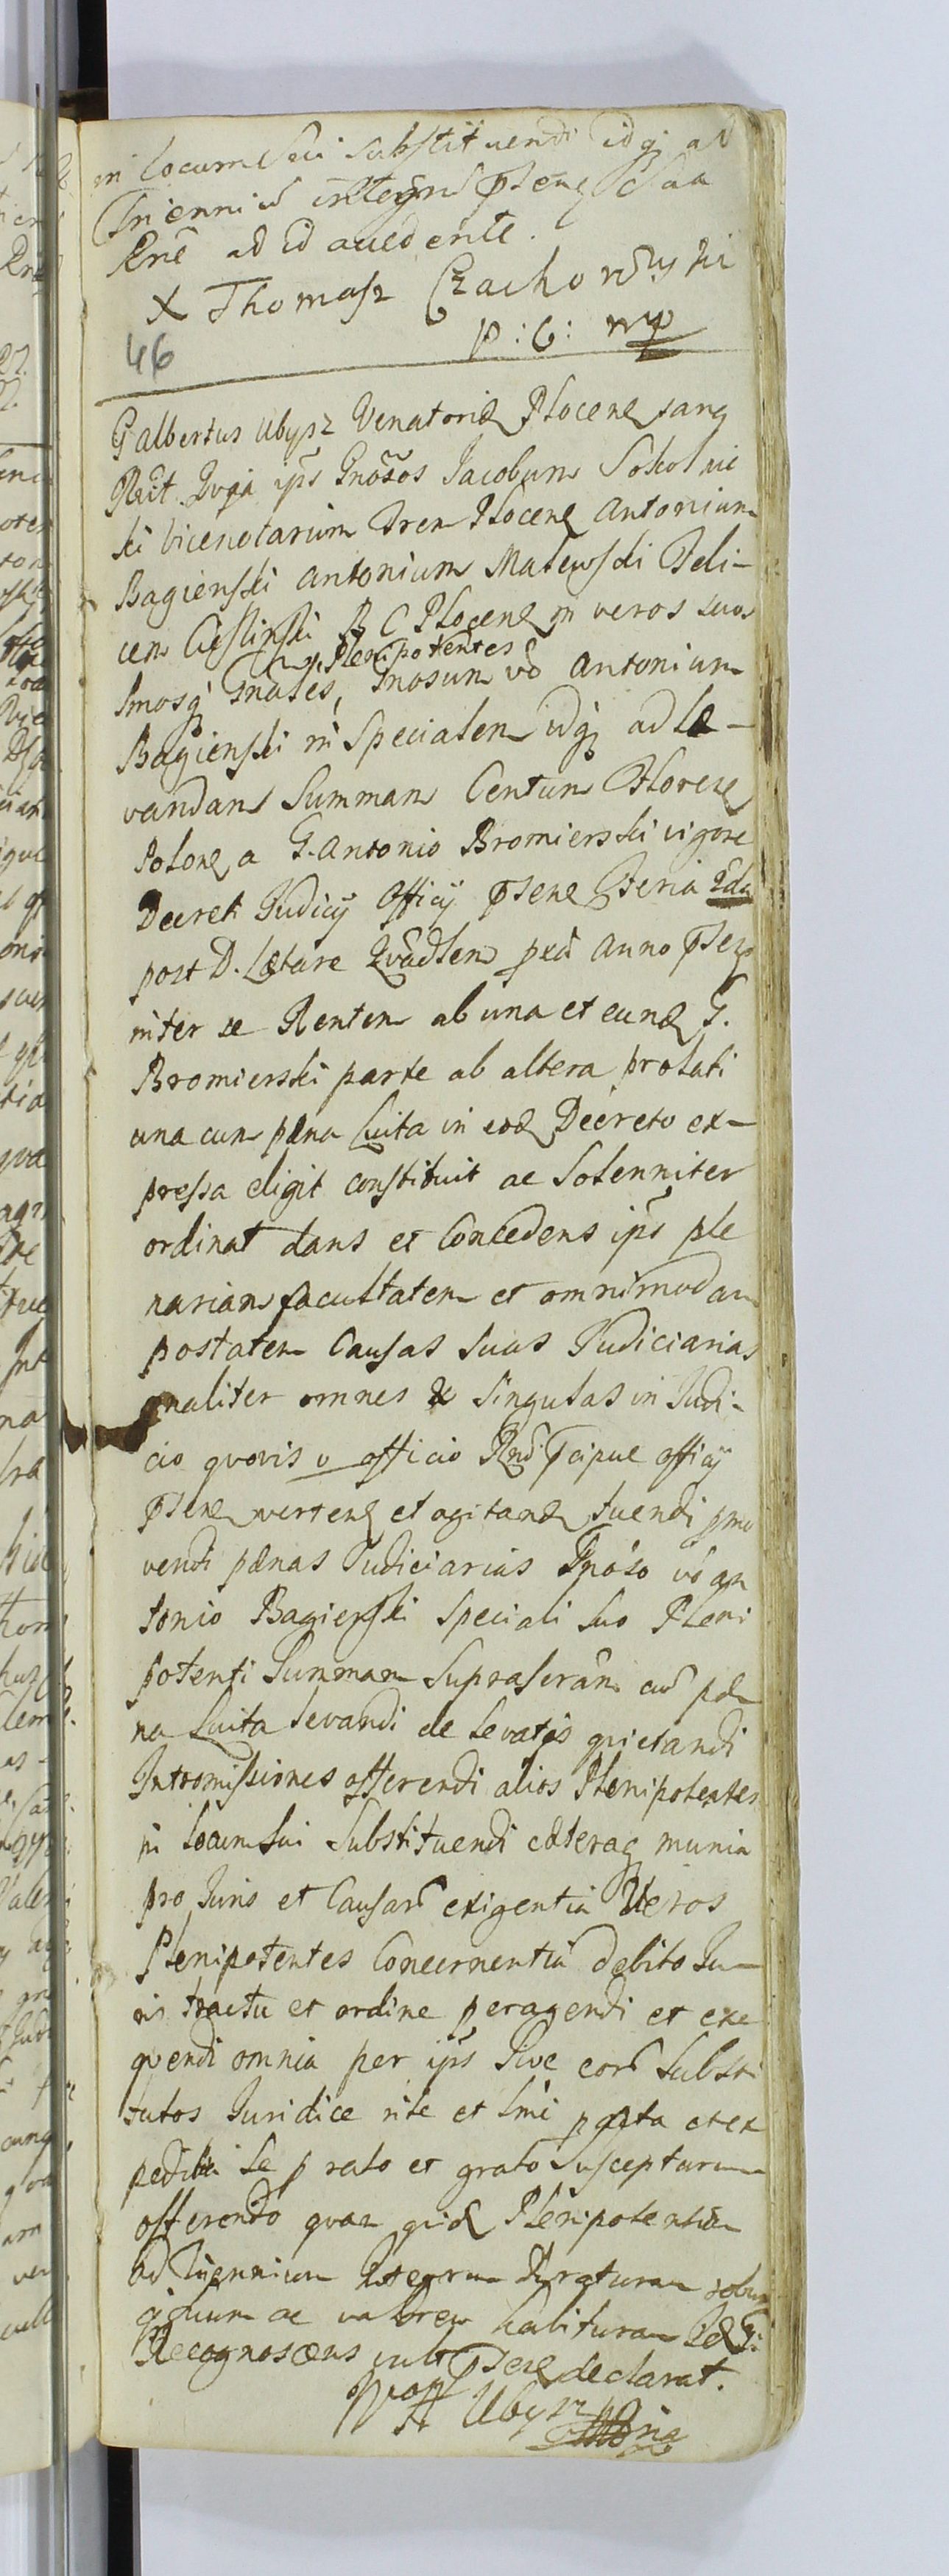 in locum Sui substituendi idq; ad
Trienniū integrū pntene
Rne ad id accedente.
X Thomasz Czachorowski
P : C : mp
46
G Albertus Ubysz Venatorid Plocenς
Recit ips Gnosos Jacobum Sokolnic
ki Vicenotarium Plocenς Antonium
Bagienski Antonium Matewski Feli-
cem Cieslinski B C Plocenς in veros suos
Plenipotentes
lmosq; Gnales, Gnosum vō Antonium
Bagienski in Specialem idq; ad læ-
vandam Summam Centum Florenς
Polonς a G. Antonio Bromierski vigore
Decreti Judicij Officij pntenς Feria 2da
post D. Lætare Anno
inter se Rentem ab una et eundς G.
Bromierski parte ab altera prolati
una cum pæna Luita in eodς Decreto ex-
pressa eligit constituit ac Solenniter
ordinat dans et Concedens ips ple
nariam facultatem et omnimodam
postatem Causas Suas Judiciarias
gnaliter omnes & Singulas in Judi-
cio qvovis v officio officij
vertenς et agitandς tuendi pmo
vendi pænas Judiciarias Gnoso vō An
tonio Bagienski Speciali Suo Pleni
potenti Summam cū pæ
na Luita levandi de levatis qvietandi
Intromissiones offerendi alios Plenipotentes
in locum Sui Substituendi cæteraq; munia
pro Juris et Causarū exigentia Veros
Plenipotentes Concernentia debito Ju-
ris tractu et ordine peragendi et exe
qvendi omnia per ips Sive eorū Substi
tutos Juridice rite et lme pacta et ex
pedita Se p rato et grato Suscepturum
offerendo qvam qvidς Plenipotentiam
ad Triennium Integrum Duraturam robur
ac valorem habituram
Recognoscens declarat.
A Ubysz